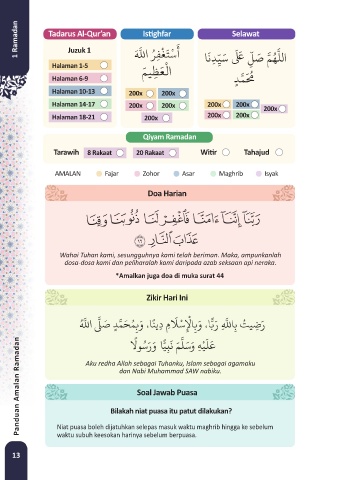 1 Ramadan
Tadarus Al-Qur'an
Juzuk 1
Halaman 1-5
Halaman 6-9
Halaman 10-13
Halaman 14-17
Halaman 18-21
Istighfar
أَسْتَغْفِرُ اللَّهَ
الْعَظِيمَ
200x 200x
200x 200x
200x
Selawat
اللَّهُمَّ صَلِّ عَلَىٰ سَيِّدِنَا
مُحَمَّدٍ
200x 200x
200x
200x 200x
Qiyam Ramadan
Tarawih 8 Rakaat 20 Rakaat Witir Tahajud
AMALAN Fajar Zohor Asar Maghrib Isyak
Doa Harian
رَبَّنَآ إِنَّنَآ ءَامَنَّا فَٱغْفِرْ لَنَا ذُنُوبَنَا وَقِنَا
عَذَابَ ٱلنَّارِ ١٦
Wahai Tuhan kami, sesungguhnya kami telah beriman. Maka, ampunkanlah
dosa-dosa kami dan peliharalah kami daripada azab seksaan api neraka.
*Amalkan juga doa di muka surat 44
Zikir Hari Ini
رَضِيتُ بِاللَّهِ رَبًّا، وَبِالْإِسْلَامِ دِينًا، وَبِمُحَمَّدٍ صَلَّى اللَّهُ
عَلَيْهِ وَسَلَّمَ نَبِيًّا وَرَسُولًا
Aku redha Allah sebagai Tuhanku, Islam sebagai agamaku
dan Nabi Muhammad SAW nabiku.
Soal Jawab Puasa
Bilakah niat puasa itu patut dilakukan?
Niat puasa boleh dijatuhkan selepas masuk waktu maghrib hingga ke sebelum
waktu subuh keesokan harinya sebelum berpuasa.
Panduan Amalan Ramadan
13